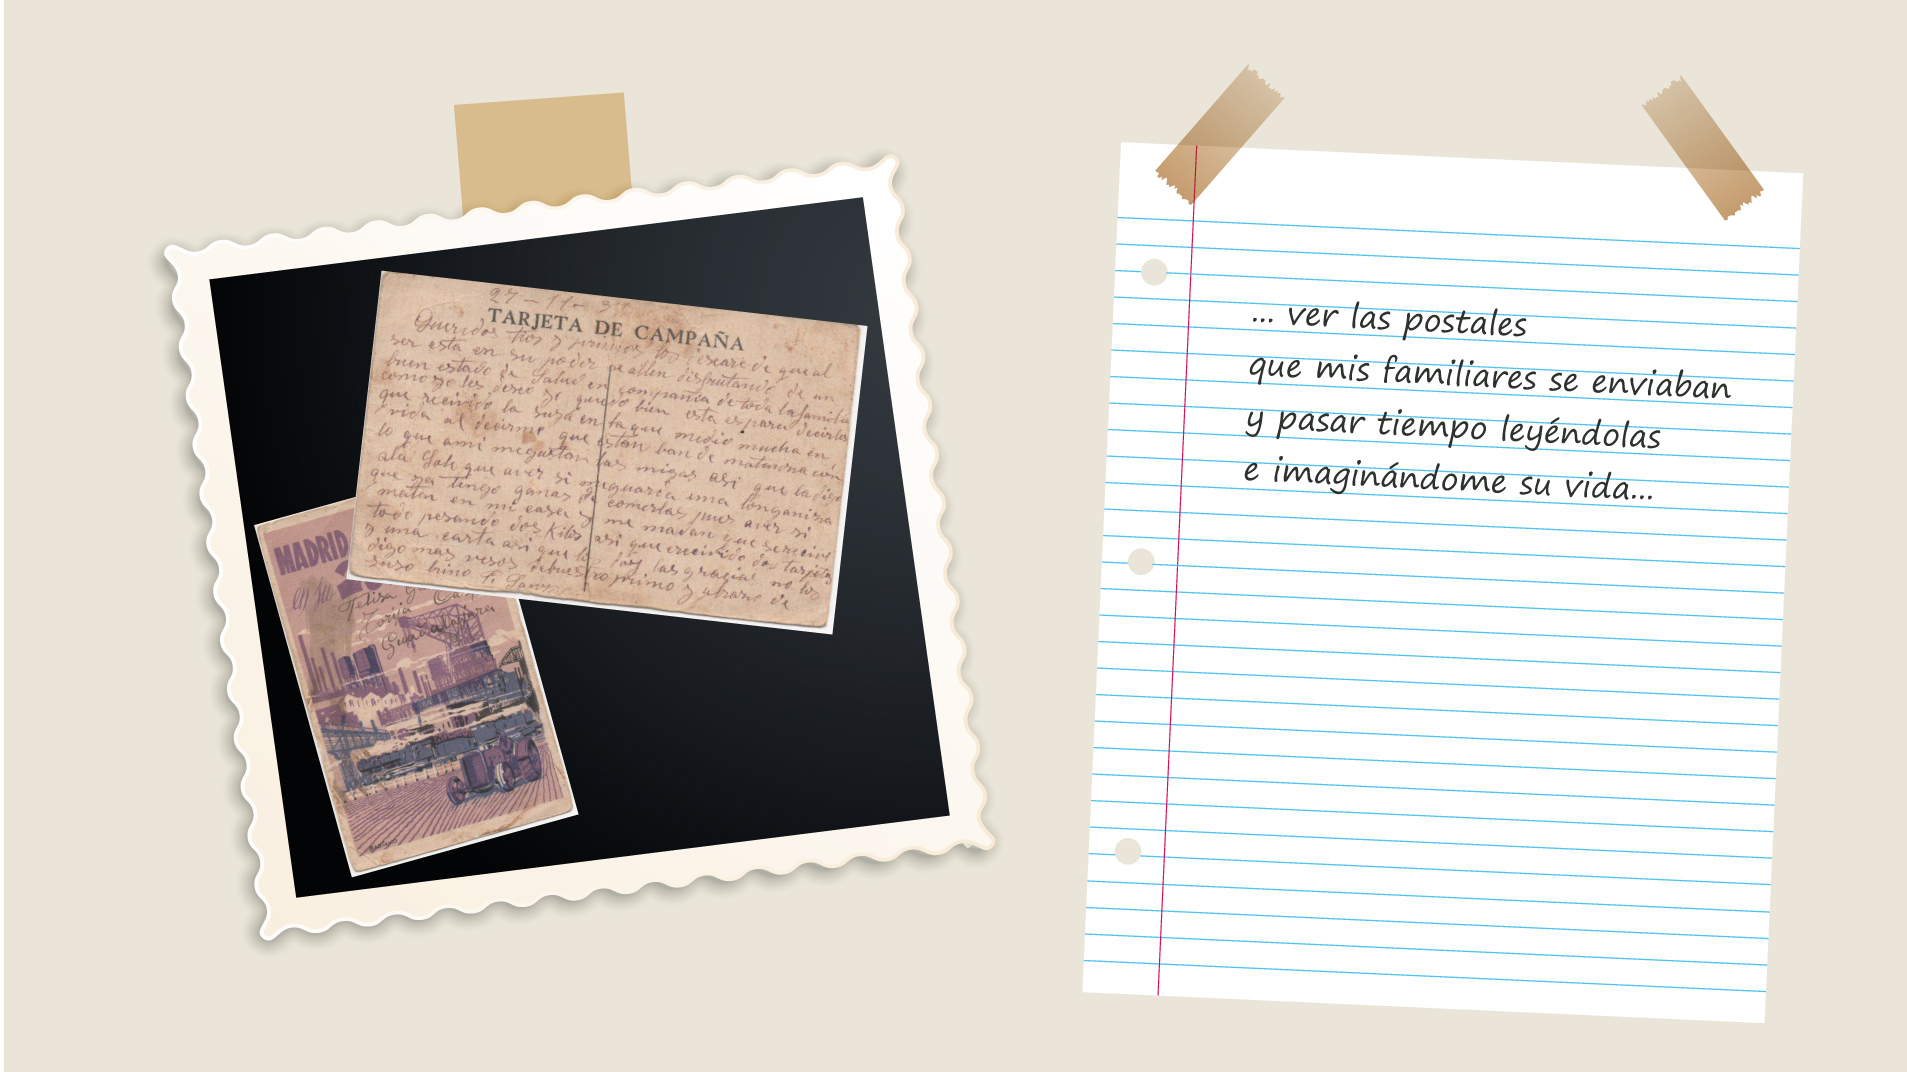 27-11-37
TARJETA DE CAMPAÑA
Queridos tios y primos los deseare que al
ser esta en su poder se allen disfrutando de un
buen estado de Salud en compañia de toda la familia
como yo les deseo yo quedo bien esta es para decirles
que recivido la suya en la que medio mucha en
vida al decirme que estan ban de matanza con
lo que ami me gustan las migas asi que la digo
ala que aver si me guarda una longaniza
que ya tengo ganas de comerlas pues aver si
maten en mi casa y me mandan que sere
todo pesando dos Kilos asi que recivido dos tarjetas
y una carta asi que le doy las gracias no los
digo mas vesos de buestro primo y abrazo de
suso brino
MADRID
Felisa
Torija
Guadalajara
... ver las postales
que mis familiares se enviaban
y pasar tiempo leyéndolas
e imaginándome su vida...